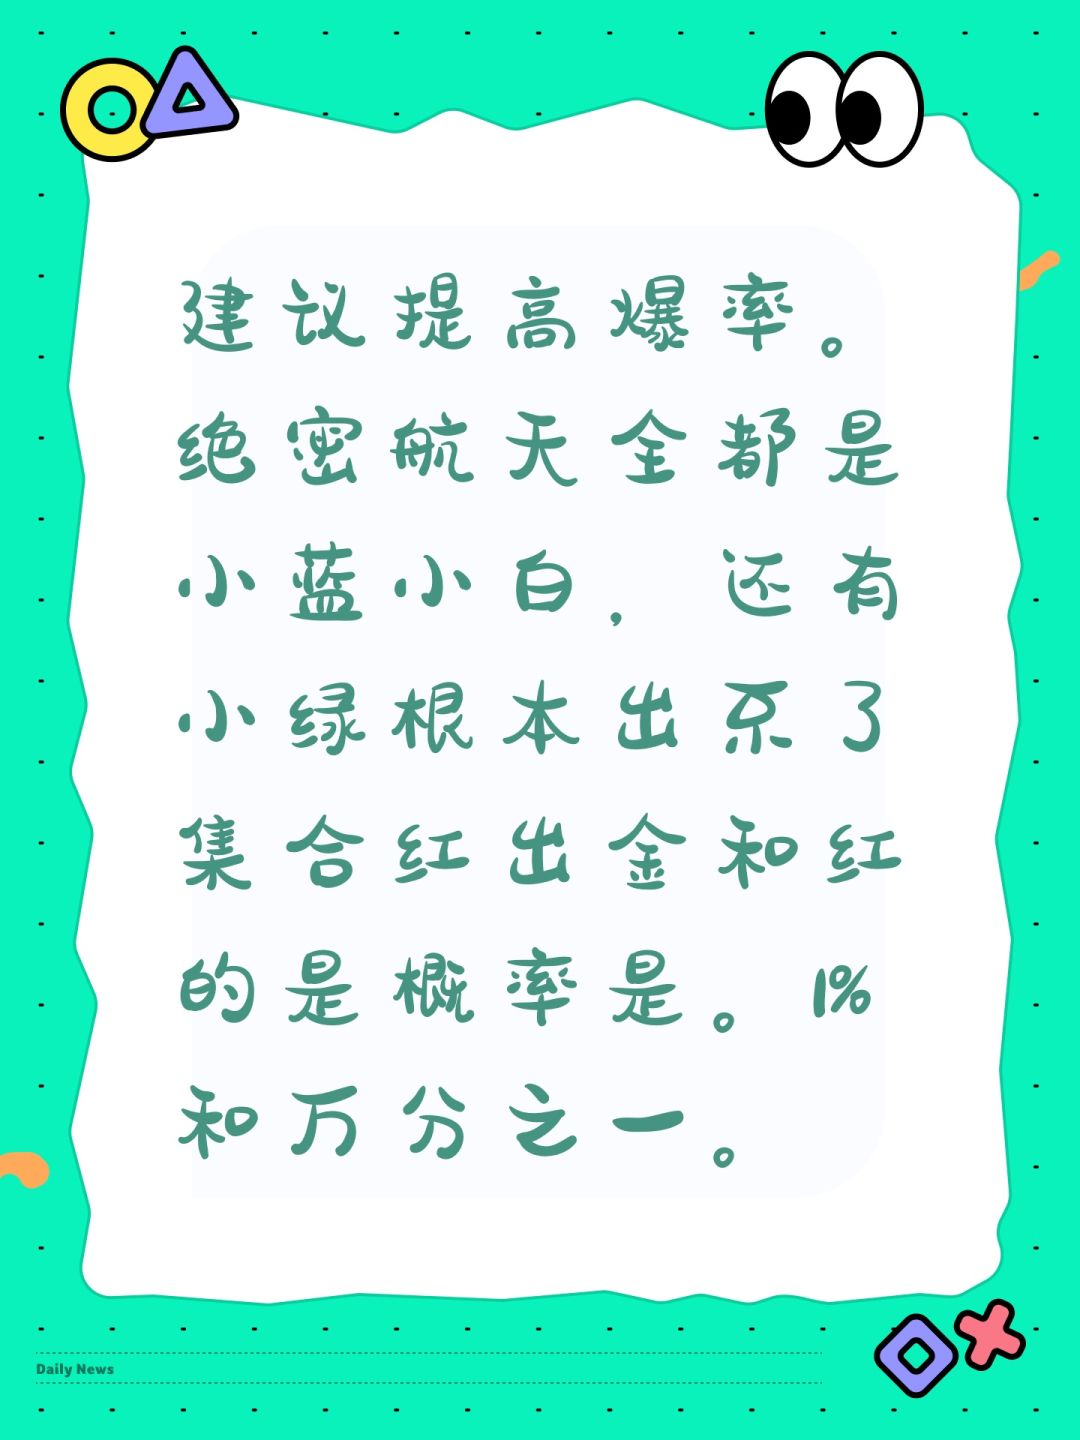 建议提高爆率。
绝密航天全都是
小蓝小白，还有
小绿根本出不了
集合红出金和红
的是概率是。1%
和万分之一。
Daily News